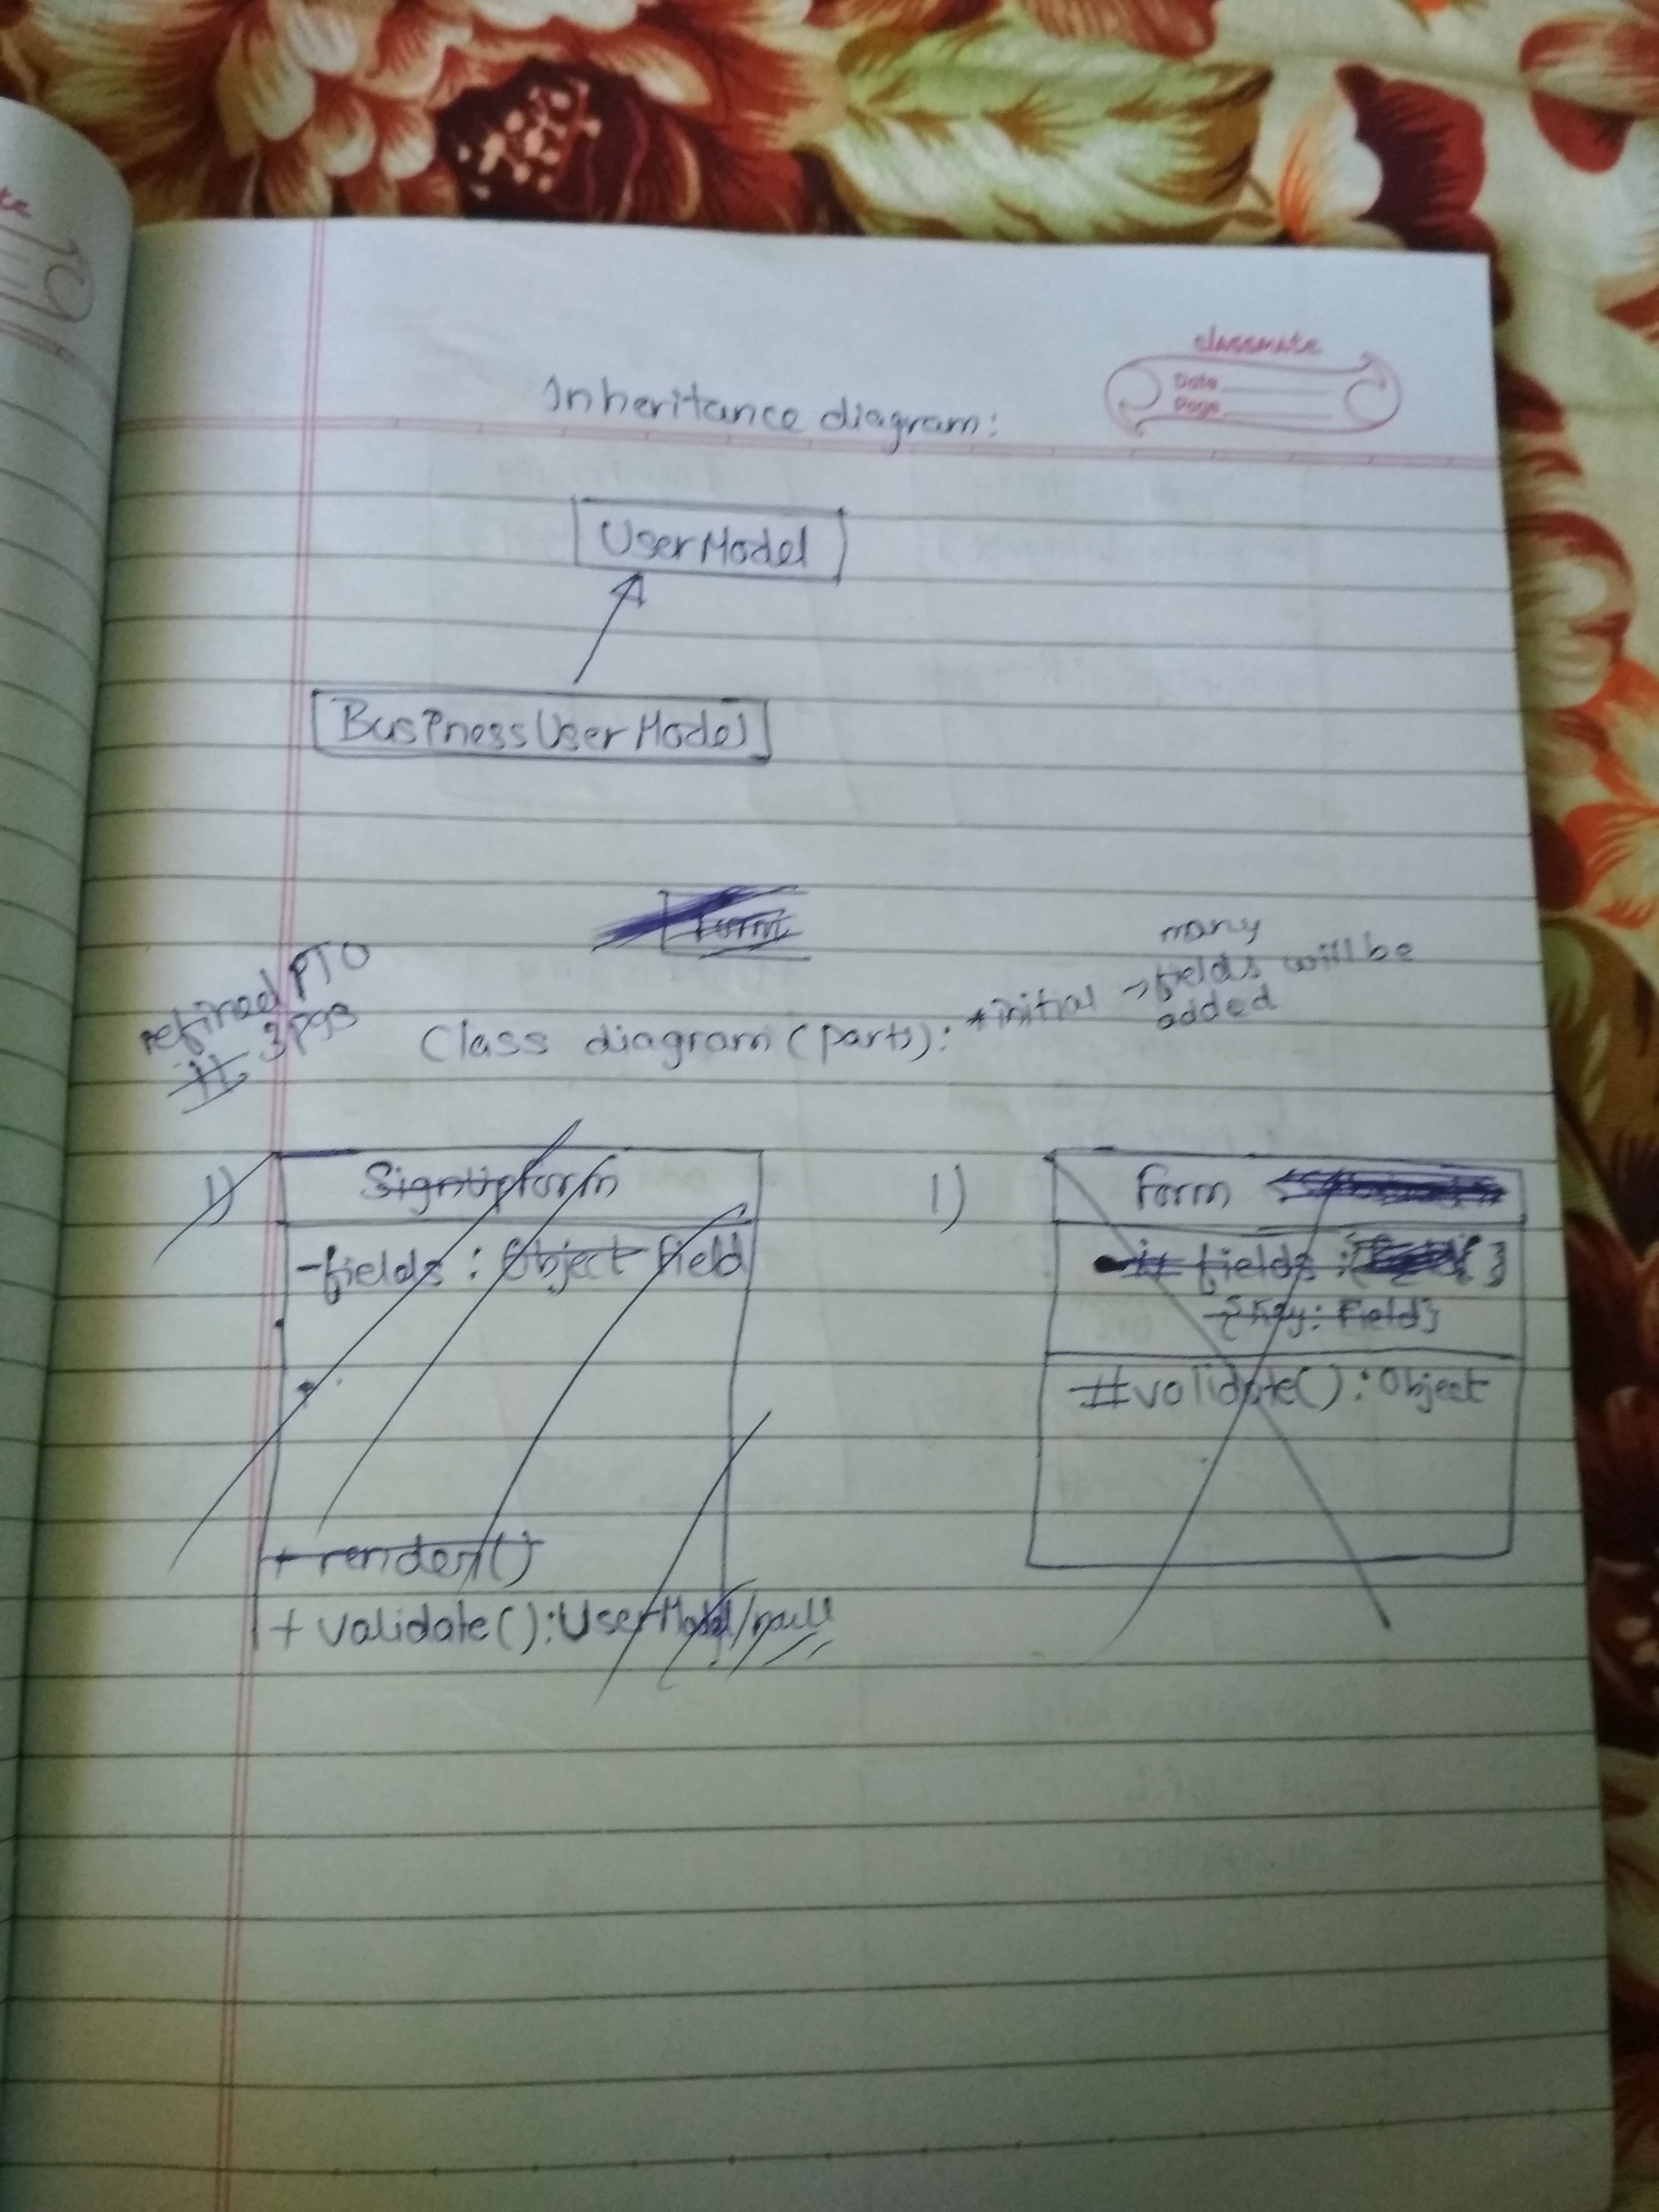 te
classmate
Date
Page
Inheritance diagram:
UserModel
BusinessUserModel
Form
refined PTO
it 3pgs
many
Class diagram (parts): *initial → fields will be
added
1) SignUpForm
-fields : Object Field
+ render()
+ validate():UserModel/null
1) Form
# fields : { }
{key: Field}
#validate() : Object